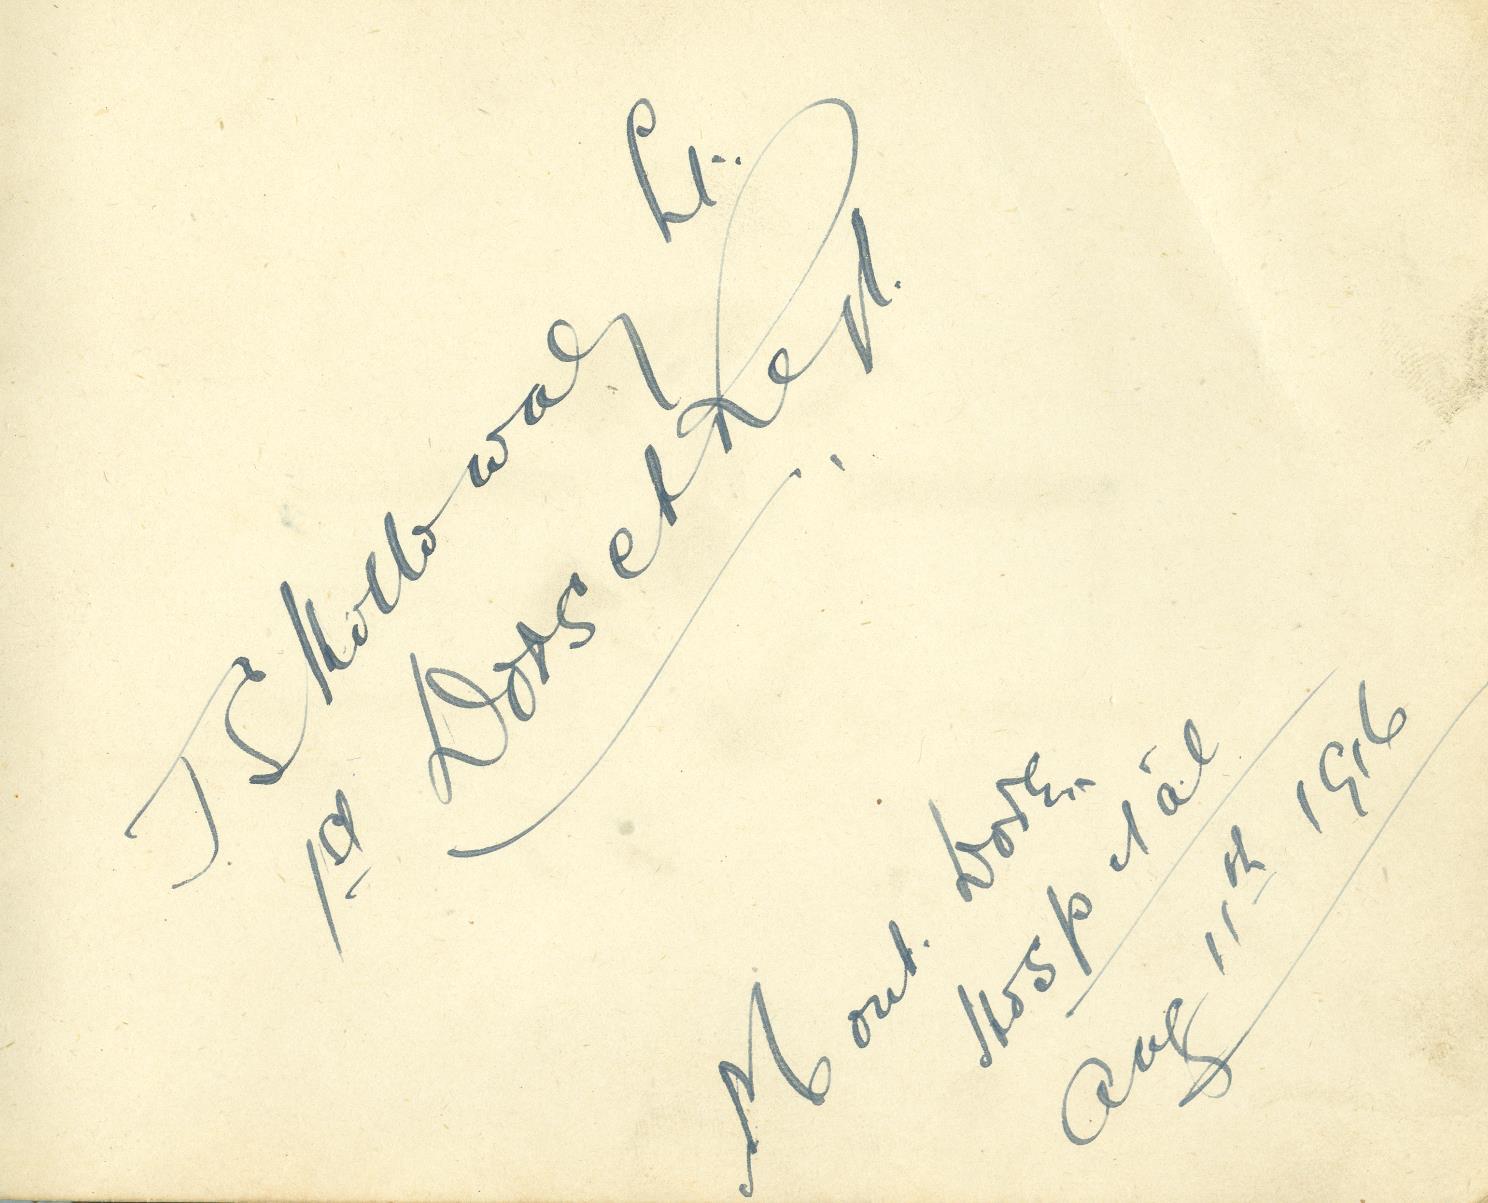 J S Holloway Lt.
1st Dorset Regt.
Mount Dore
Hospital
Aug 11th 1916